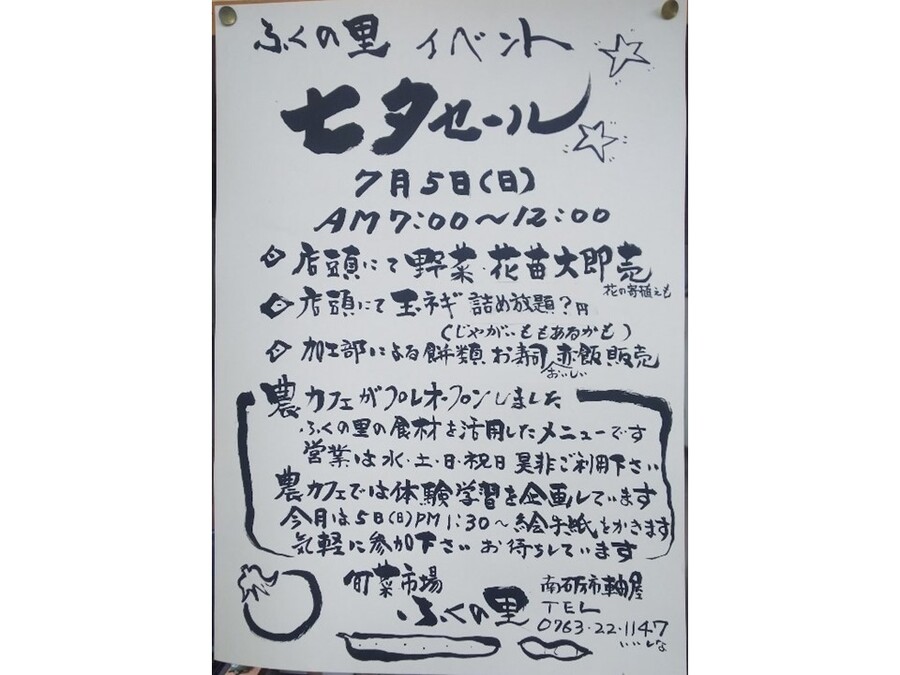 ふくの里 イベント
七夕セール
7月5日(日)
AM7:00〜12:00
◇店頭にて野菜・花苗大即売
花の寄植えも
◇店頭にて玉ネギ 詰め放題?円
(じゃがいももあるかも)
◇加工部による餅類 お寿司 赤飯販売
おいしい
農カフェがプレオープンしました
ふくの里の食材を活用したメニューです
営業は水・土・日・祝日 是非ご利用下さい
農カフェでは体験学習を企画しています
今月は5日(日)PM1:30〜絵手紙をかきます
気軽に参加下さい お待ちしています
旬菜市場
ふくの里
南砺市軸屋
TEL
0763・22・1147
いいしな